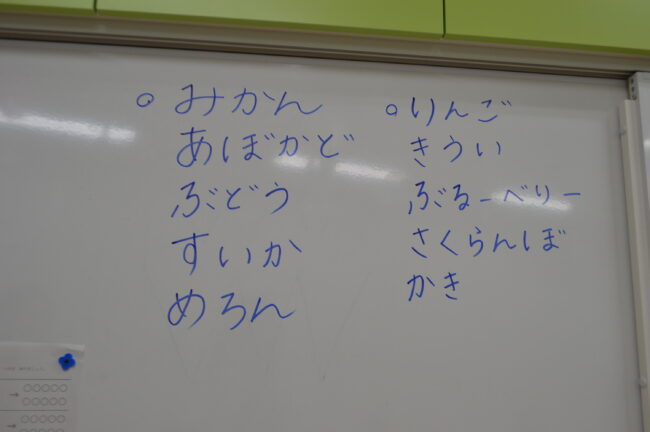 ○ みかん
あぼかど
ぶどう
すいか
めろん
○ りんご
きうい
ぶるーべりー
さくらんぼ
かき
→ ○○○○○
○○○○○
→ ○○○○○
○○○○○